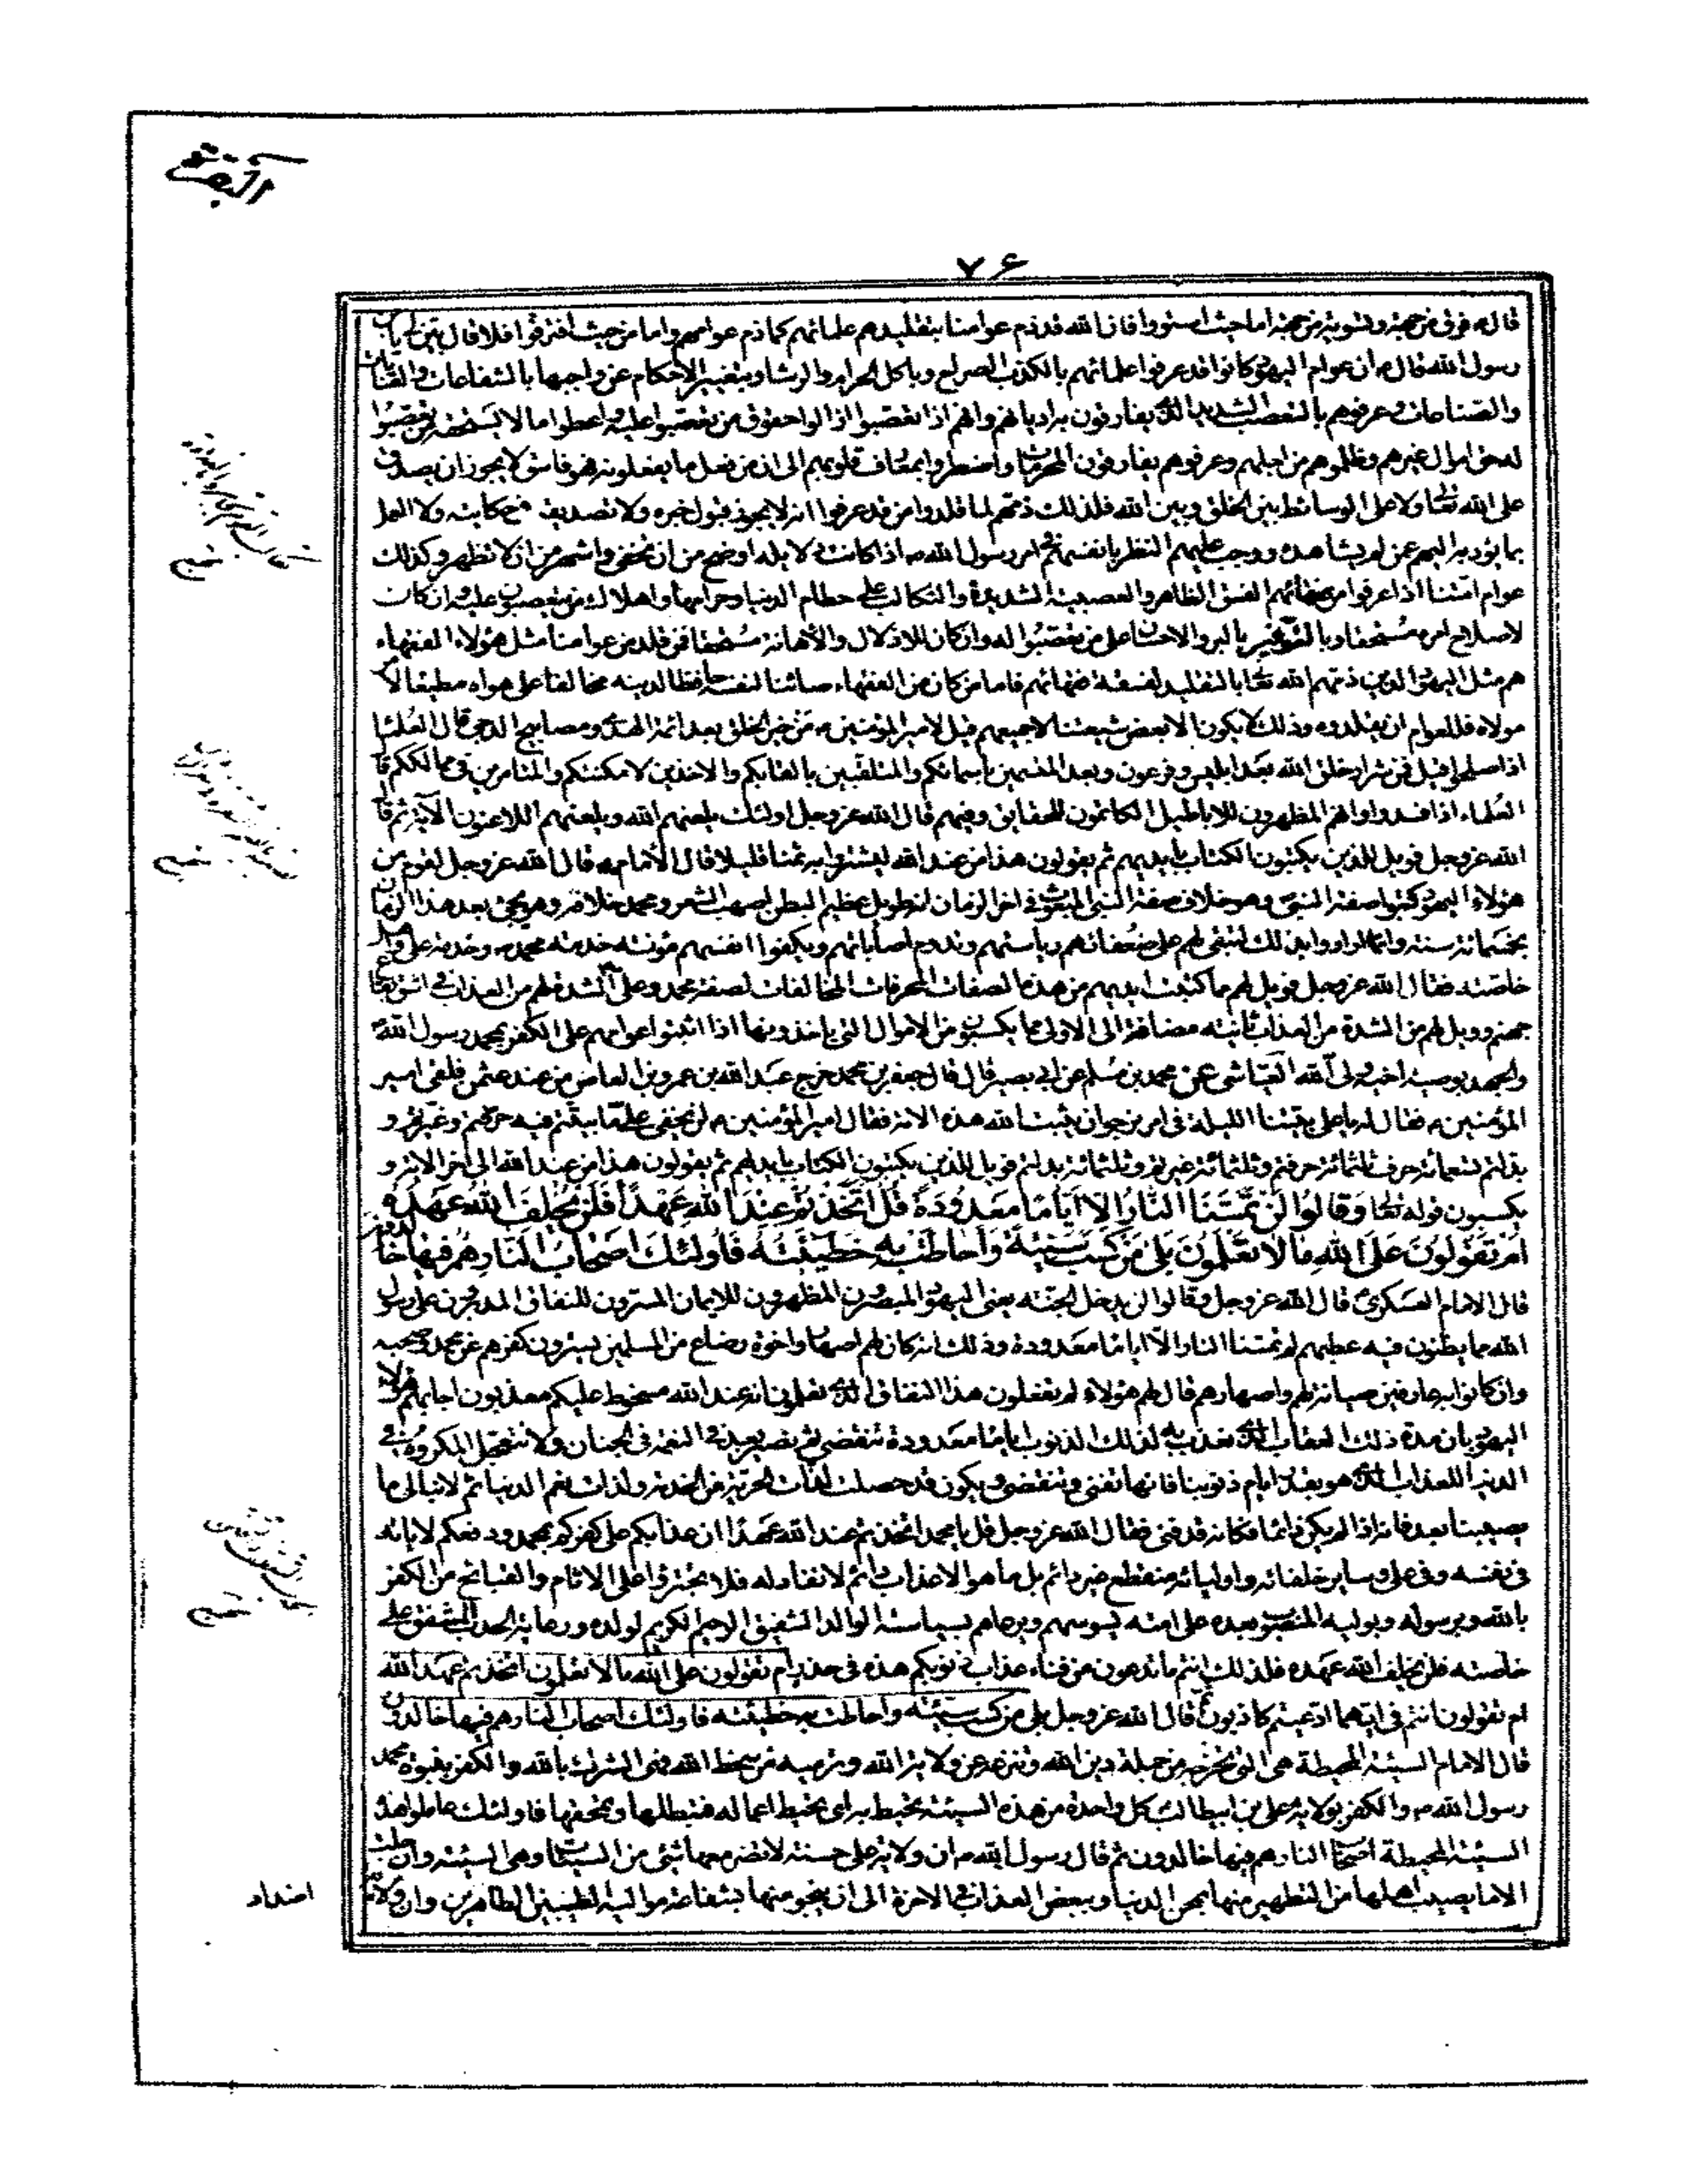 البقرة
٧۶
قال ع فرق من جهة وتسوية من جهة اما حيث استووا فان الله قد ذم عوامنا بتقليدهم علمائهم كما ذم عوامهم واما من حيث افترقوا فلا قال بين لي يابن
رسول الله قال ع ان عوام اليهود كانوا قد عرفوا علمائهم بالكذب الصراح وباكل الحرام والرشا وبتغيير الاحكام عن واجبها بالشفاعات والعنايات
والصناعات وعرفوهم بالتعصب الشديد الذي يفارقون به اديانهم وانهم اذا تعصبوا ازالوا حقوق من تعصبوا عليه واعطوا ما لا يستحقه من تعصبوا
له من اموال غيرهم وظلموهم من اجلهم وعرفوهم يقارفون المحرمات واضطروا بمعارف قلوبهم الى ان من فعل ما يفعلونه فهو فاسق لا يجوز ان يصدق
على الله تعالى ولا على الوسائط بين الخلق وبين الله فلذلك ذمهم لما قلدوا من قد عرفوا انه لا يجوز قبول خبره ولا تصديقه في حكايته ولا العمل
بما يؤديه اليهم عمن لم يشاهدوه ووجب عليهم النظر بانفسهم في امر رسول الله ص اذا كانت دلايله اوضح من ان تخفى واشهر من ان لا تظهر وكذلك
عوام امتنا اذا عرفوا من فقهائهم الفسق الظاهر والعصبية الشديدة والتكالب على حطام الدنيا وحرامها واهلاك من يتعصبون عليه وان كان
لاصلاح امره مستحقا وبالترفرف بالبر والاحسان على من تعصبوا له وان كان للاذلال والاهانة مستحقا فمن قلد من عوامنا مثل هؤلاء الفقهاء
هم مثل اليهود الذين ذمهم الله تعالى بالتقليد لفسقة فقهائهم فاما من كان من الفقهاء صائنا لنفسه حافظا لدينه مخالفا على هواه مطيعا لامر
مولاه فللعوام ان يقلدوه وذلك لا يكون الا بعض شيعتنا لا جميعهم قيل لامير المؤمنين ع من خير الخلق بعد ائمة الهدى ومصابيح الدجى قال العلماء
اذا صلحوا قيل فمن شرار خلق الله بعد ابليس وفرعون وبعد المتسمين باسمائكم والمتلقبين بالقابكم والاخذين لامكنتكم والمتامرين في ممالككم قال
العلماء اذا فسدوا وانهم المظهرون للاباطيل الكاتمون للحقايق وفيهم قال الله عز وجل اولئك يلعنهم الله ويلعنهم اللاعنون الآية ثم قال
الله عز وجل فويل للذين يكتبون الكتاب بايديهم ثم يقولون هذا من عند الله ليشتروا به ثمنا قليلا قال الامام ع قال الله عز وجل لقوم من
هؤلاء اليهود كتبوا صفة النبي وهو خلاف صفة النبي المبعوث في اخر الزمان انه طويل عظيم البطن اصهب الشعر ومحمد خلافه وهو يجيء بعد هذا الزمان
بخمسمائة سنة وانما ارادوا بذلك لتبقى لهم على ضعفائهم رياستهم وتدوم اصاباتهم ويكفوا انفسهم مؤنته خدمته محمد ص وخدمة على واهل
خاصته فقال الله عز وجل فويل لهم مما كتبت ايديهم من هذه الصفات المحرفات المخالفات لصفة محمد وعلى الشدة لهم من العذاب في اسوء بقاع
جهنم وويل لهم من الشدة من العذاب ثانية مضافة الى الاولى مما يكسبون من الاموال التي ياخذونها اذا اثبتوا عوامهم على الكفر بمحمد رسول الله
والجحد بوصيه اخيه ولى الله العياشي عن محمد بن مسلم عن ابي بصير قال قال جعفر بن محمد خرج عبد الله بن عمرو بن العاص من عند عثمن فلقى امير
المؤمنين ع فقال له يا على بيتنا الليلة في امر نرجو ان يثبت الله هذه الامة فقال امير المؤمنين ع لن يخفى على ما بيتم فيه حرفتم وغيرتم و
بدلتم تسعمائة حرف ثلثمائة حرفتم وثلثمائة غيرتم وثلثمائة بدلتم فويل للذين يكتبون الكتاب بايديهم ثم يقولون هذا من عند الله الى اخر الاية و
يكسبون قوله تعالى وَقَالُوا لَنْ تَمَسَّنَا النَّارُ اِلَّا اَيَّامًا مَعْدُودَةً قُلْ اَتَّخَذْتُمْ عِنْدَ اللهِ عَهْدًا فَلَنْ يُخْلِفَ اللهُ عَهْدَهُ
اَمْ تَقُولُونَ عَلَى اللهِ مَا لَا تَعْلَمُونَ بَلٰى مَنْ كَسَبَ سَيِّئَةً وَاَحَاطَتْ بِهِ خَطِيئَتُهُ فَاُولٰئِكَ اَصْحَابُ النَّارِ هُمْ فِيهَا خَالِدُونَ
قال الامام العسكري قال الله عز وجل وقالوا لن يدخل الجنة يعنى اليهود المصرون المظهرون للايمان المسترون للنفاق المدبرون على رسول
الله ما يظنون فيه عطبهم لن تمسنا النار الا اياما معدودة وذلك انه كان لهم اصهار واخوة رضاع من المسلمين يسترون كفرهم عن محمد وصحبه
وان كانوا به عارفين صيانة لهم ولاصهارهم قال لهم هؤلاء لم تفعلون هذا النفاق الذي تعلمون انه عند الله مسخوط عليكم معذبون اجابهم هؤلاء
اليهود بان مدة ذلك العقاب الذي نعذب به لذلك الذنوب اياما معدودة تنقضى ثم نصير بعد في النعمة في الجنان ولا نتعجل المكروه في
الدنيا للعذاب الذي هو بقدر ايام ذنوبنا فانها تفنى وتنقضى ويكون قد حصلت لذات الحرية من الخدمة ولذات نعم الدنيا ثم لا نبالى ما
يصيبنا بعد فانه اذا لم يكن دائما فكانه قد فنى فقال الله عز وجل قل يا محمد اتخذتم عند الله عهدا ان عذابكم على كفركم بمحمد ودفعكم لاياته
في نفسه وفي على وساير خلفائه واوليائه منقطع غير دائم بل ما هو الا عذاب دائم لا نفاد له فلا تجترؤا على الاثام والقبائح من الكفر
بالله وبرسوله وبوليه المنصوب بعده على امته ليسوسهم ويرعاهم بسياسة الوالد الشفيق الرحيم الكريم لولده ورعاية الحدب المشفق على
خاصته فلن يخلف الله عهده فلذلك انتم ما تدعون من فناء عذاب ذنوبكم هذه في حرز ام تقولون على الله ما لا تعلمون اتخذتم عهد الله
ام تقولون انتم في ايهما ادعيتم كاذبون ثم قال الله عز وجل بلى من كسب سيئة واحاطت به خطيئته فاولئك اصحاب النار هم فيها خالدون
قال الامام السيئة المحيطة هي التي تخرجه من جملة دين الله وتنزعه عن ولاية الله وترميه من سخط الله فهى الشرك بالله والكفر بنبوة محمد
رسول الله ص والكفر بولاية على بن ابيطالب كل واحدة من هذه السيئة يحيط به اى يحيط اعماله فتبطلها وتمحقها فاولئك عاملوا هذه
السيئة المحيطة اصحاب النار هم فيها خالدون ثم قال رسول الله ص ان ولاية على حسنة لا تضر معها شئ من السيئات وهى السيئة وان جلت
الا ما يصيب اهلها من التطهير منها بمحن الدنيا وببعض العذاب في الاخرة الى ان ينجو منها بشفاعة مواليه الطيبين الطاهرين وان ولاية
اضداد